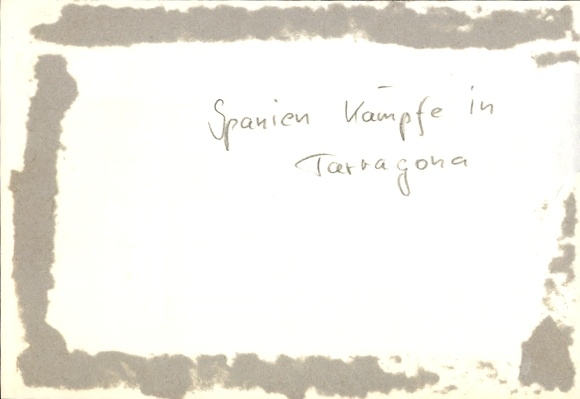 Spanien Kämpfe in
Tarragona